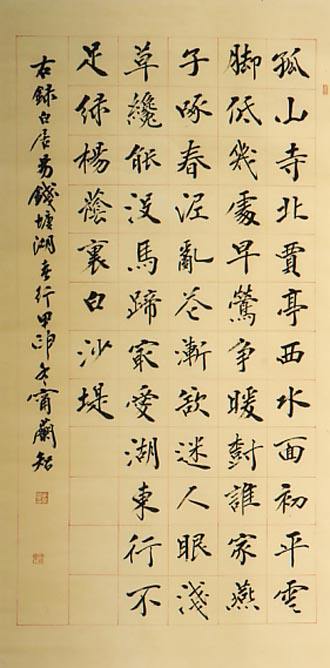 孤山寺北賈亭西水面初平雲
脚低幾處早鶯争暖樹誰家燕
子啄春泥亂花漸欲迷人眼淺
草纔能没馬蹄冣愛湖東行不
足緑楊蔭裏白沙堤
右録白居易錢塘湖春行甲申冬甯